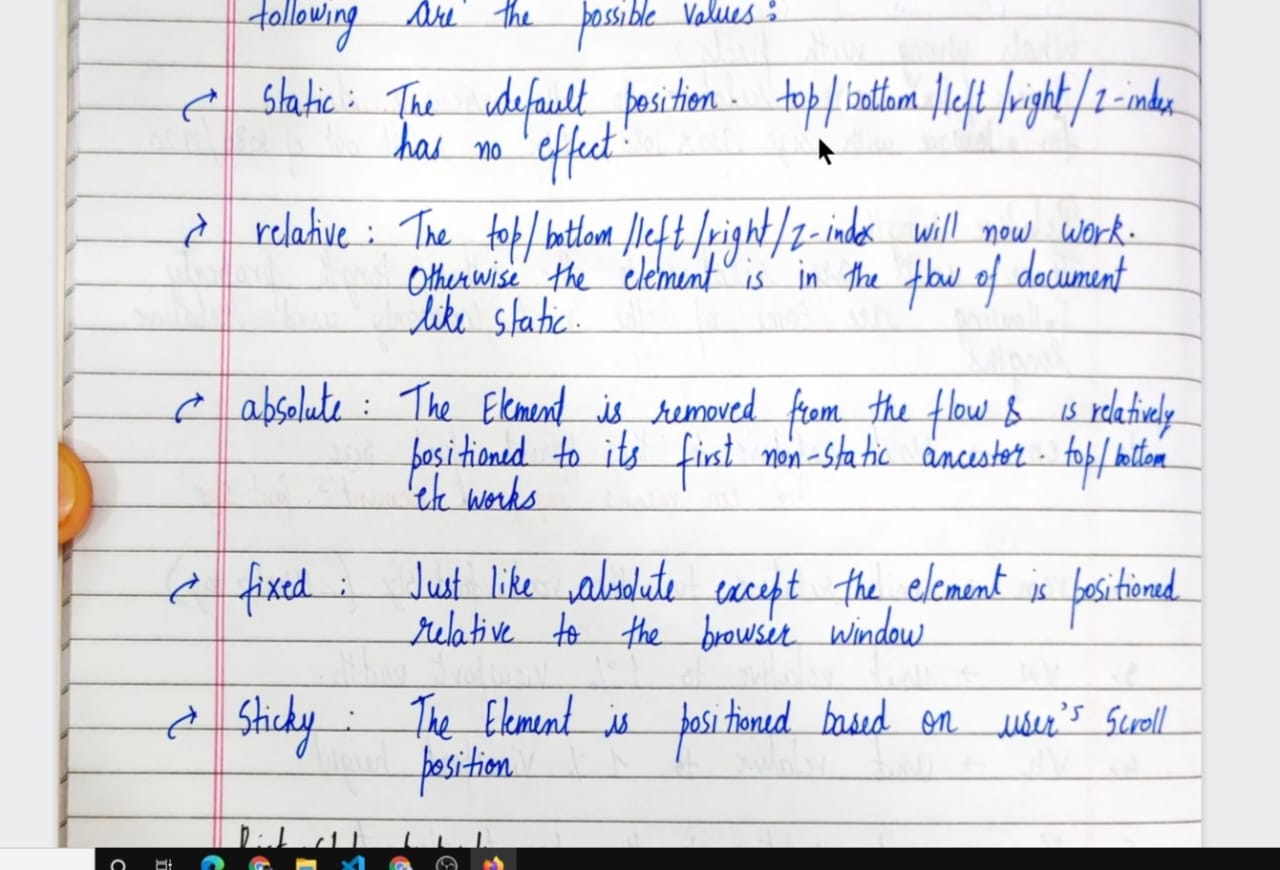 following are the possible values :
Static : The default position. top/bottom/left/right/z-index
has no effect.
relative : The top/bottom/left/right/z-index will now work.
Otherwise the element is in the flow of document
like static.
absolute : The Element is removed from the flow & is relatively
positioned to its first non-static ancestor. top/bottom
etc works
fixed : Just like absolute except the element is positioned
relative to the browser window
Sticky : The Element is positioned based on user's Scroll
position